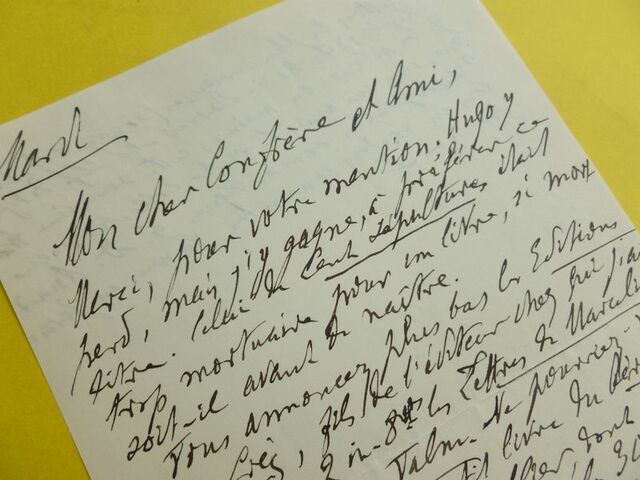 Mardi
Mon cher Confrère et Ami,
Merci, pour votre mention: Hugo y
perd, mais j'y gagne, à préférer ce
titre. Celui de Cent sépultures était
trop mortuaire pour un livre, si mort
soit-il avant de naître.
Vous annoncez plus bas les Editions
Crès, fils de l'éditeur chez qui j'ai
2 in-8° les Lettres de Marceline
Valm. Ne pourriez-
livre du
dont